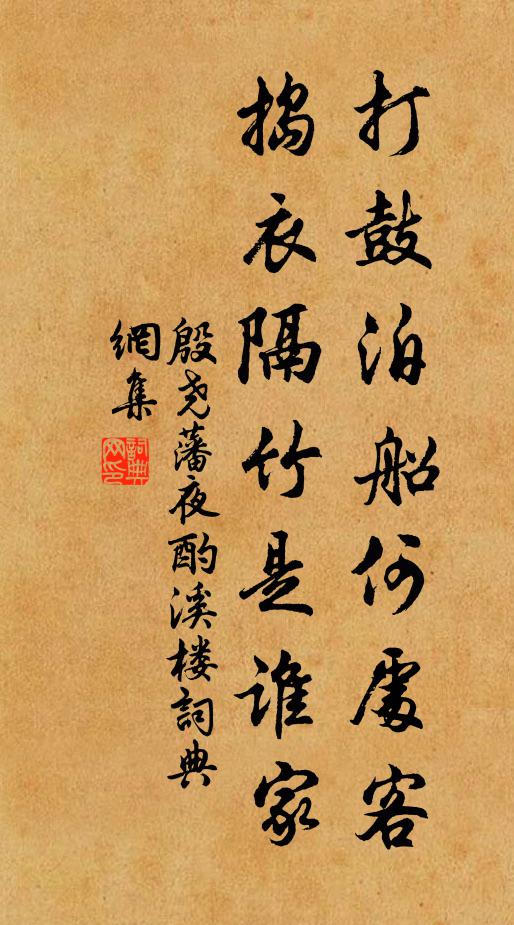 打鼓泊船何處客
搗衣隔竹是誰家
殷尧藩夜酌溪楼詞典
網集
詞典網印